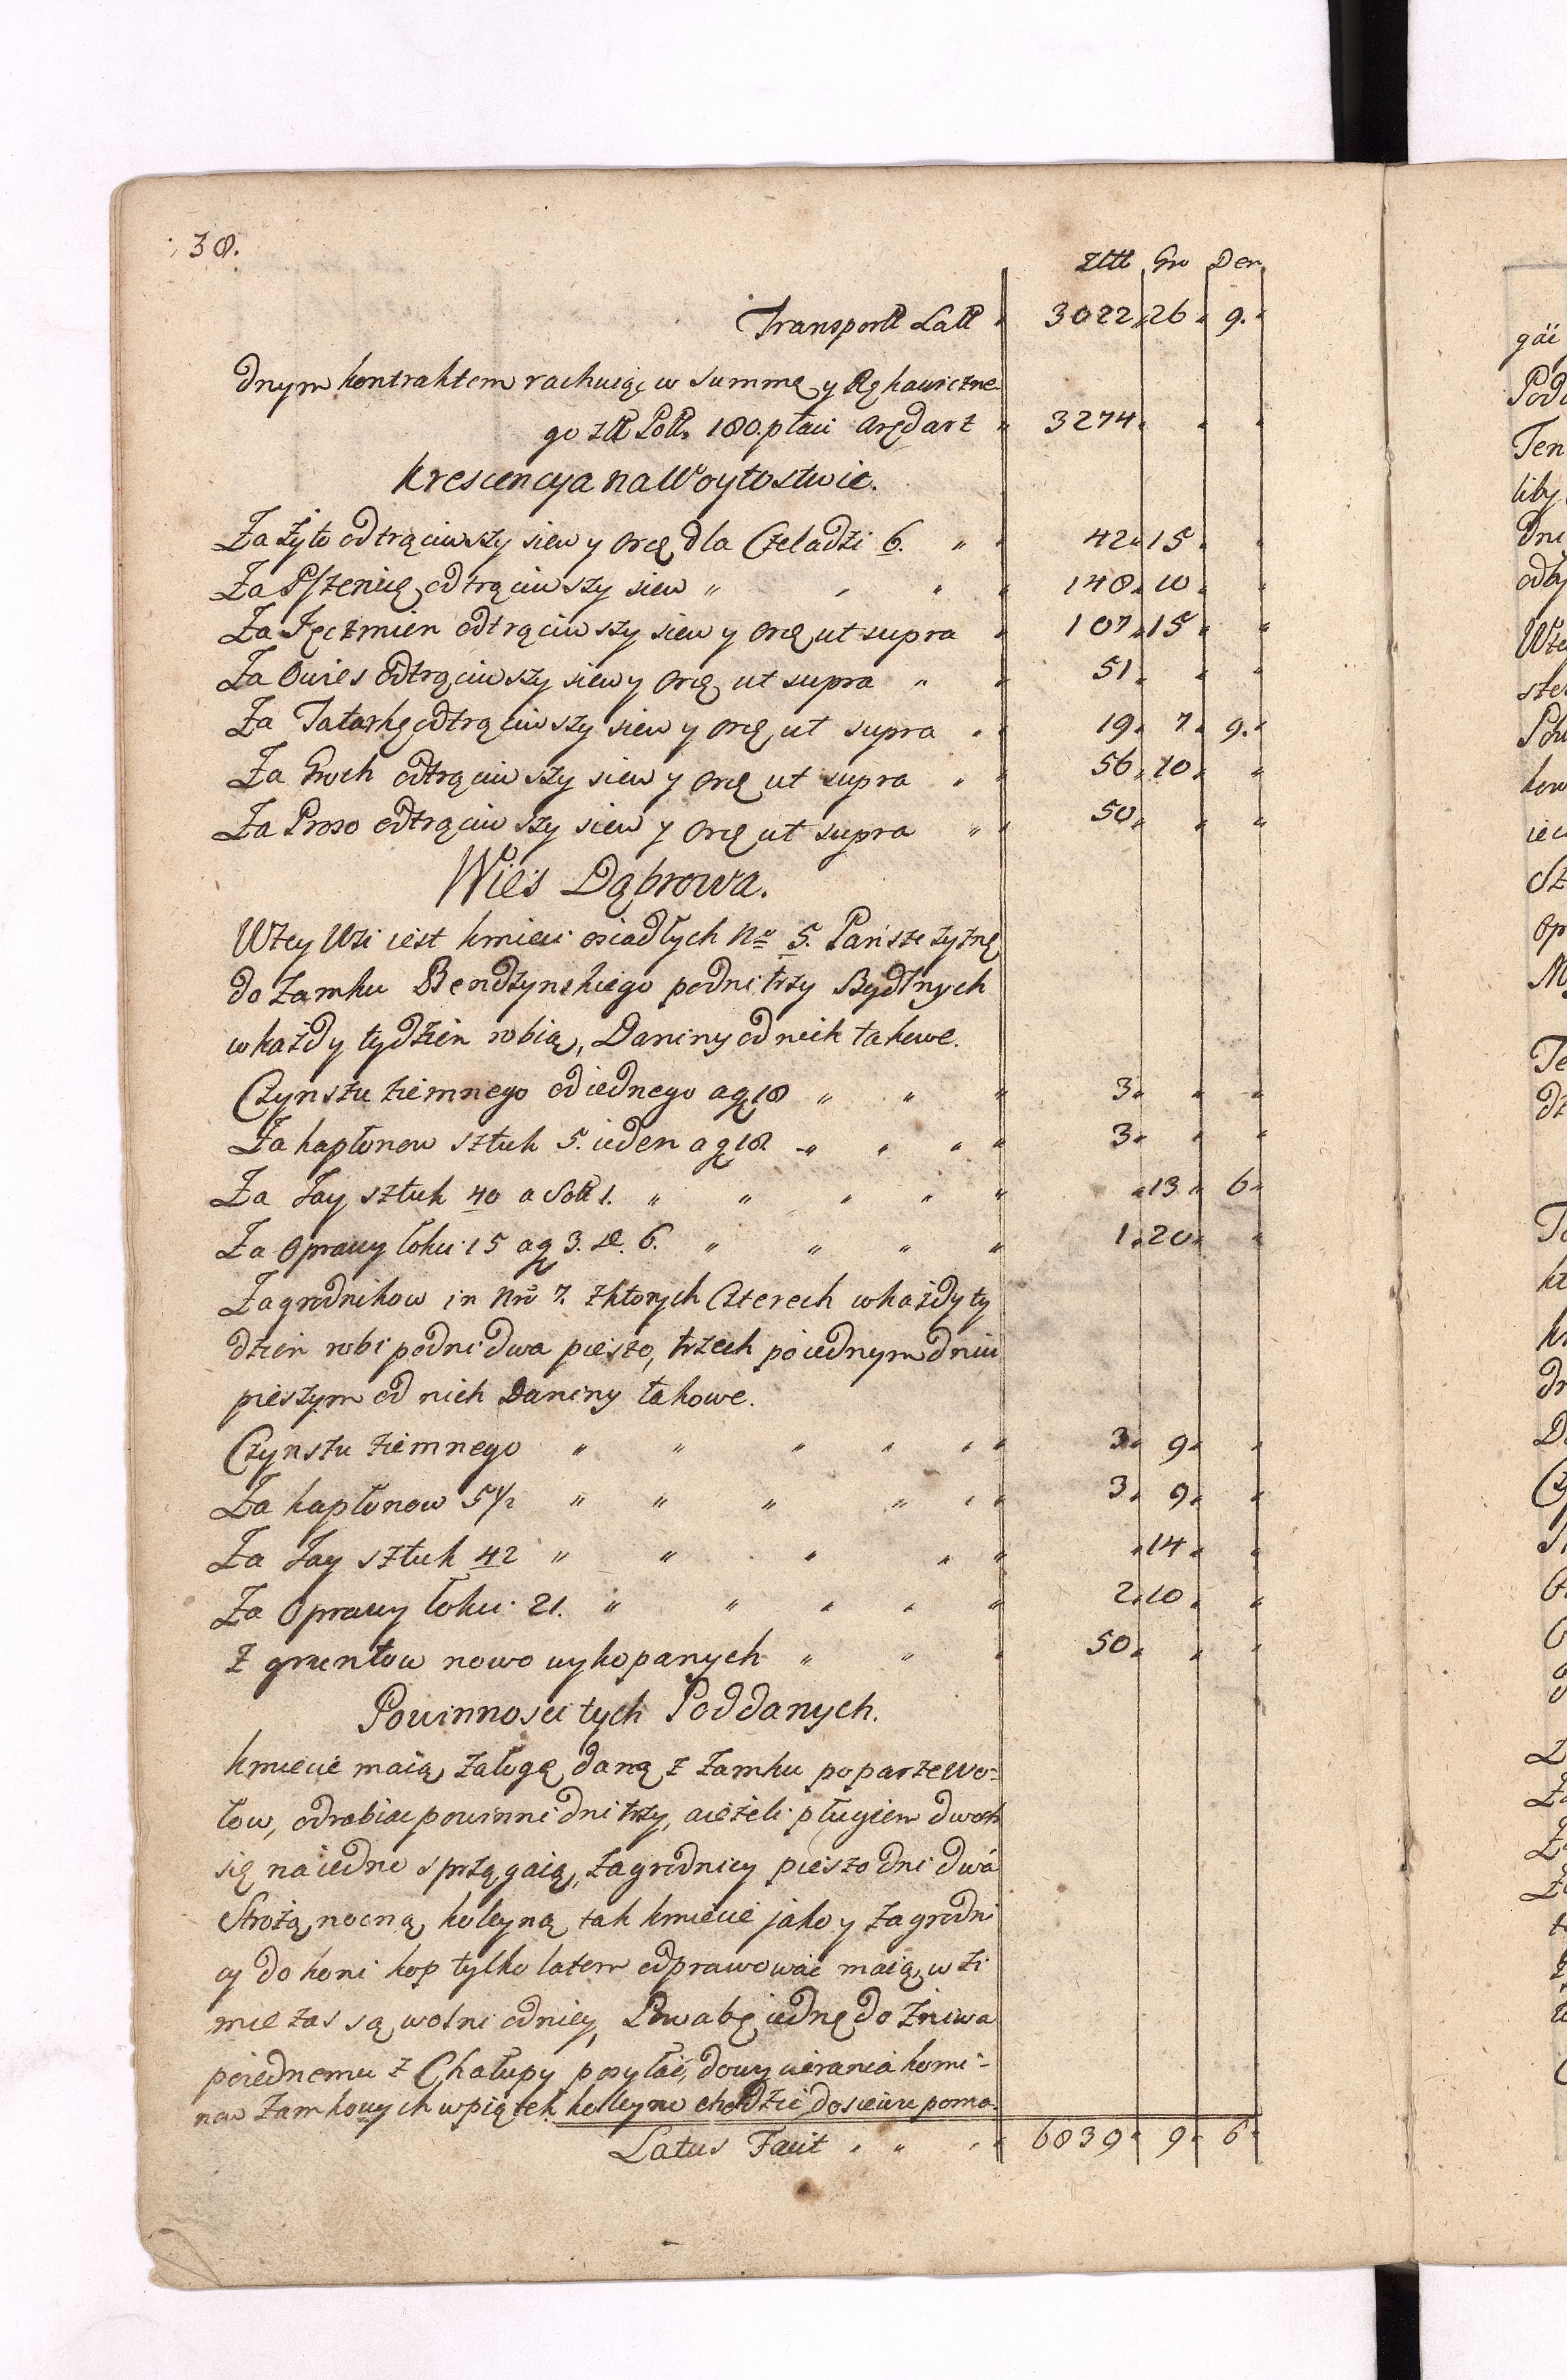 38.
Złtt Gro Den
Transportt Latt 3022 26 9.
dnym kontraktem rachuiąc w Summę y Rękawiczne
go złt Polt. 180. płaci Arędarz 3274
Krescencya na Woytostwie.
Za żyto odtrąciwszy siew y orę dla Czeladzi 6. " 42 15
Za Pszenicę odtrąciwszy siew " 148 10
Za Jęczmien odtrąciwszy siew y orę ut supra 107 15
Za Owies odtrąciwszy siew y orę ut supra " 51
Za Tatarkę odtrąciwszy siew y orę ut supra 19 7 9.
Za Groch odtrąciwszy siew y orę ut supra 56 10
Za Proso odtrąciwszy siew y orę ut supra 50
Wieś Dąbrowa.
W tey Wsi iest kmieci osiadłych No 5. Pańszczyznę
do Zamku Bendzynskiego po dni trzy Bydlnych
w każdy tydzien robią, Daniny od nich takowe.
Czynszu ziemnego od iednego a gr 18 " " 3
Za kapłonow sztuk 5. ieden a gr 18 " 3
Za Jay sztuk 40 a Soll 1. " " 13 6
Za Oprawy łokci 15 a gr 3. sz. 6. " " 1 20
Zagrodnikow in Nro 7. z ktorych Czterech w każdy ty
dzien robi po dni dwa pieszo, trzech po iednym dniu
pieszym od nich Daniny takowe.
Czynszu ziemnego " " 3 9
Za kapłonow 5 1/2 " " 3 9
Za Jay sztuk 42 " " 14
Za Oprawy łokci 21. " " 2 10
Z gruntow nowo wykopanych " " 50
Powinnosci tych Poddanych.
Kmiecie maią załogę daną z Zamku po parze Wo-
łow, odrabiac powinni dni trzy, a ieżeli pługiem dwoch
się na iedno sprzągaią, zagrodnicy pieszo dni dwa
Strożą nocną koleyną tak kmiecie jako y zagrodni
cy do koni kop tylko latem odprawować maią, w zi
mie zas są wolni od niey, Powabę iednę do żniwa
po iednemu z Chałupy posyłać, do wycierania komi-
now Zamkowych w piątek koleyno chodzic, do siewu poma-
Latus Facit " 6839 9 6